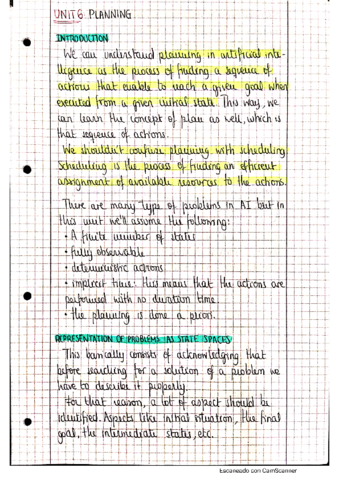 UNIT 6 PLANNING
INTRODUCTION
We can understand planning in artificial inte-
lligence as the process of finding a sequence of
actions that enable to reach a given goal when
executed from a given initial state. This way, we
can learn the concept of plan as well, which is
that sequence of actions.
We shouldn't confuse planning with scheduling.
Scheduling is the process of finding an efficient
assignment of available resources to the actions.
There are many type of problems in AI but in
this unit we'll assume the following:
• A finite number of states
• fully observable
• deterministic actions
• implicit time: this means that the actions are
performed with no duration time.
• the planning is done a priori.
REPRESENTATION OF PROBLEMS AS STATE SPACES
This basically consists of acknowledging that
before searching for a solution of a problem we
have to describe it properly.
For that reason, a lot of aspect should be
identified. Aspects like initial situation, the final
goal, the intermediate states, etc.
Escaneado con CamScanner